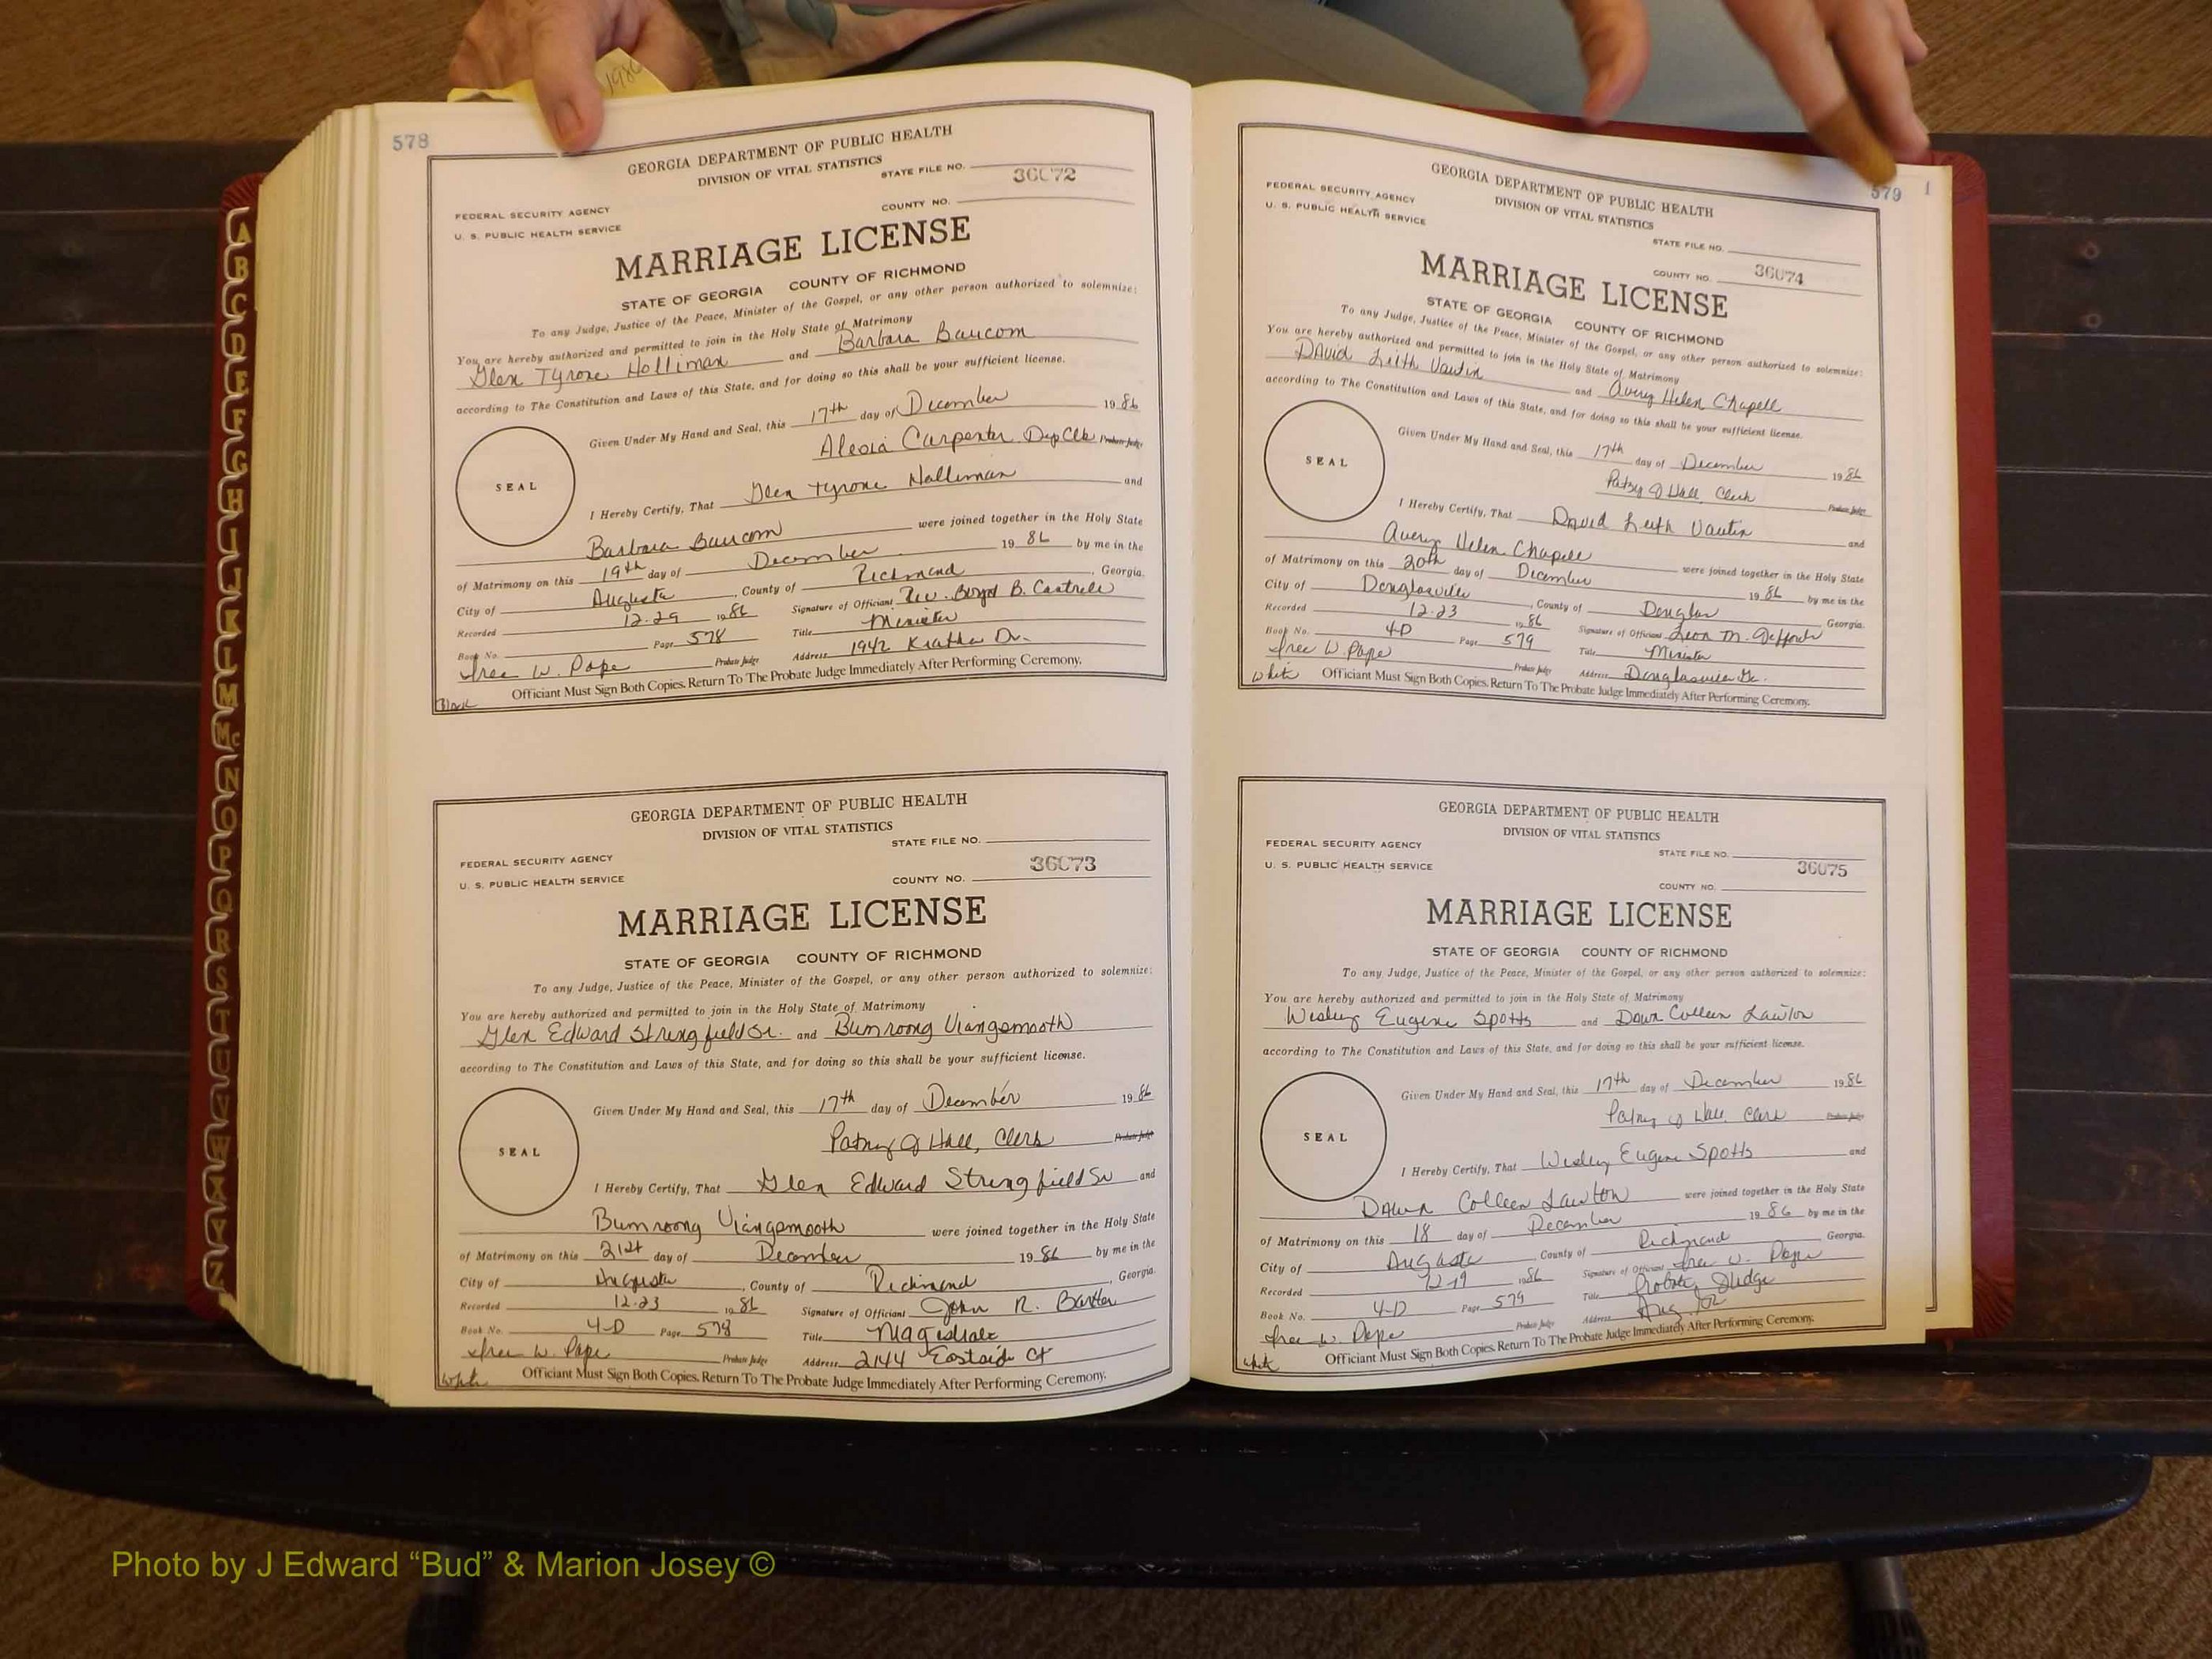 1986
A
B
C
D
E
F
G
H
I
J
K
L
M
Mc
N
O
P
Q
R
S
T
U
V
W
X
Y
Z
578
GEORGIA DEPARTMENT OF PUBLIC HEALTH
DIVISION OF VITAL STATISTICS
STATE FILE NO. 36072
FEDERAL SECURITY AGENCY
U. S. PUBLIC HEALTH SERVICE
COUNTY NO.
MARRIAGE LICENSE
STATE OF GEORGIA COUNTY OF RICHMOND
To any Judge, Justice of the Peace, Minister of the Gospel, or any other person authorized to solemnize:
You are hereby authorized and permitted to join in the Holy State of Matrimony
Glen Tyrone Holliman and Barbara Baucom
according to The Constitution and Laws of this State, and for doing so this shall be your sufficient license.
Given Under My Hand and Seal, this 17th day of December 1986
Alexia Carpenter Dep Clk Probate Judge
SEAL
I Hereby Certify, That Glen Tyrone Holliman and
Barbara Baucom were joined together in the Holy State
of Matrimony on this 19th day of December 1986 by me in the
City of Augusta, County of Richmond, Georgia.
Recorded 12-29 1986 Signature of Officiant Rev. Boyd B.
Book No. Page 578 Title Minister
W. Pope Probate Judge Address 1942 Dr.
Black Officiant Must Sign Both Copies. Return To The Probate Judge Immediately After Performing Ceremony.
GEORGIA DEPARTMENT OF PUBLIC HEALTH
DIVISION OF VITAL STATISTICS
STATE FILE NO.
FEDERAL SECURITY AGENCY
U. S. PUBLIC HEALTH SERVICE
COUNTY NO. 36073
MARRIAGE LICENSE
STATE OF GEORGIA COUNTY OF RICHMOND
To any Judge, Justice of the Peace, Minister of the Gospel, or any other person authorized to solemnize:
You are hereby authorized and permitted to join in the Holy State of Matrimony
Glen Edward Stringfield Sr. and Bumroong Viangsmooth
according to The Constitution and Laws of this State, and for doing so this shall be your sufficient license.
Given Under My Hand and Seal, this 17th day of December 1986
Patsy J Hall, Clerk Probate Judge
SEAL
I Hereby Certify, That Glen Edward Stringfield Sr and
Bumroong Viangsmooth were joined together in the Holy State
of Matrimony on this 21st day of December 1986 by me in the
City of Augusta, County of Richmond, Georgia.
Recorded 12-23 1986 Signature of Officiant John R.
Book No. 4-D Page 578 Title Magistrate
W. Pope Probate Judge Address 2144 Eastside Ct
White Officiant Must Sign Both Copies. Return To The Probate Judge Immediately After Performing Ceremony.
579 1
GEORGIA DEPARTMENT OF PUBLIC HEALTH
DIVISION OF VITAL STATISTICS
FEDERAL SECURITY AGENCY
U. S. PUBLIC HEALTH SERVICE
STATE FILE NO.
COUNTY NO. 36074
MARRIAGE LICENSE
STATE OF GEORGIA COUNTY OF RICHMOND
To any Judge, Justice of the Peace, Minister of the Gospel, or any other person authorized to solemnize:
You are hereby authorized and permitted to join in the Holy State of Matrimony
David Leith Vautin and Avery Helen Chapell
according to The Constitution and Laws of this State, and for doing so this shall be your sufficient license.
Given Under My Hand and Seal, this 17th day of December 1986
Patsy J Hall, Clerk Probate Judge
SEAL
I Hereby Certify, That David Leith Vautin and
Avery Helen Chapell were joined together in the Holy State
of Matrimony on this 20th day of December 1986 by me in the
City of Douglasville, County of Douglas, Georgia.
Recorded 12-23 1986 Signature of Officiant Leon M.
Book No. 4-D Page 579 Title Minister
W. Pope Probate Judge Address Douglasville Ga.
White Officiant Must Sign Both Copies. Return To The Probate Judge Immediately After Performing Ceremony.
GEORGIA DEPARTMENT OF PUBLIC HEALTH
DIVISION OF VITAL STATISTICS
FEDERAL SECURITY AGENCY
STATE FILE NO. 36075
U. S. PUBLIC HEALTH SERVICE
COUNTY NO.
MARRIAGE LICENSE
STATE OF GEORGIA COUNTY OF RICHMOND
To any Judge, Justice of the Peace, Minister of the Gospel, or any other person authorized to solemnize:
You are hereby authorized and permitted to join in the Holy State of Matrimony
Wesley Eugene Spotts and Dawn Colleen Lawton
according to The Constitution and Laws of this State, and for doing so this shall be your sufficient license.
Given Under My Hand and Seal, this 17th day of December 1986
Patsy J Hall, Clerk Probate Judge
SEAL
I Hereby Certify, That Wesley Eugene Spotts and
Dawn Colleen Lawton were joined together in the Holy State
of Matrimony on this 18 day of December 1986 by me in the
City of Augusta, County of Richmond Georgia.
Recorded 12-19 1986 Signature of Officiant W. Pope
Book No. 4-D Page 579 Title Probate Judge
W. Pope Probate Judge Address Aug.
White Officiant Must Sign Both Copies. Return To The Probate Judge Immediately After Performing Ceremony.
Photo by J Edward “Bud” & Marion Josey ©